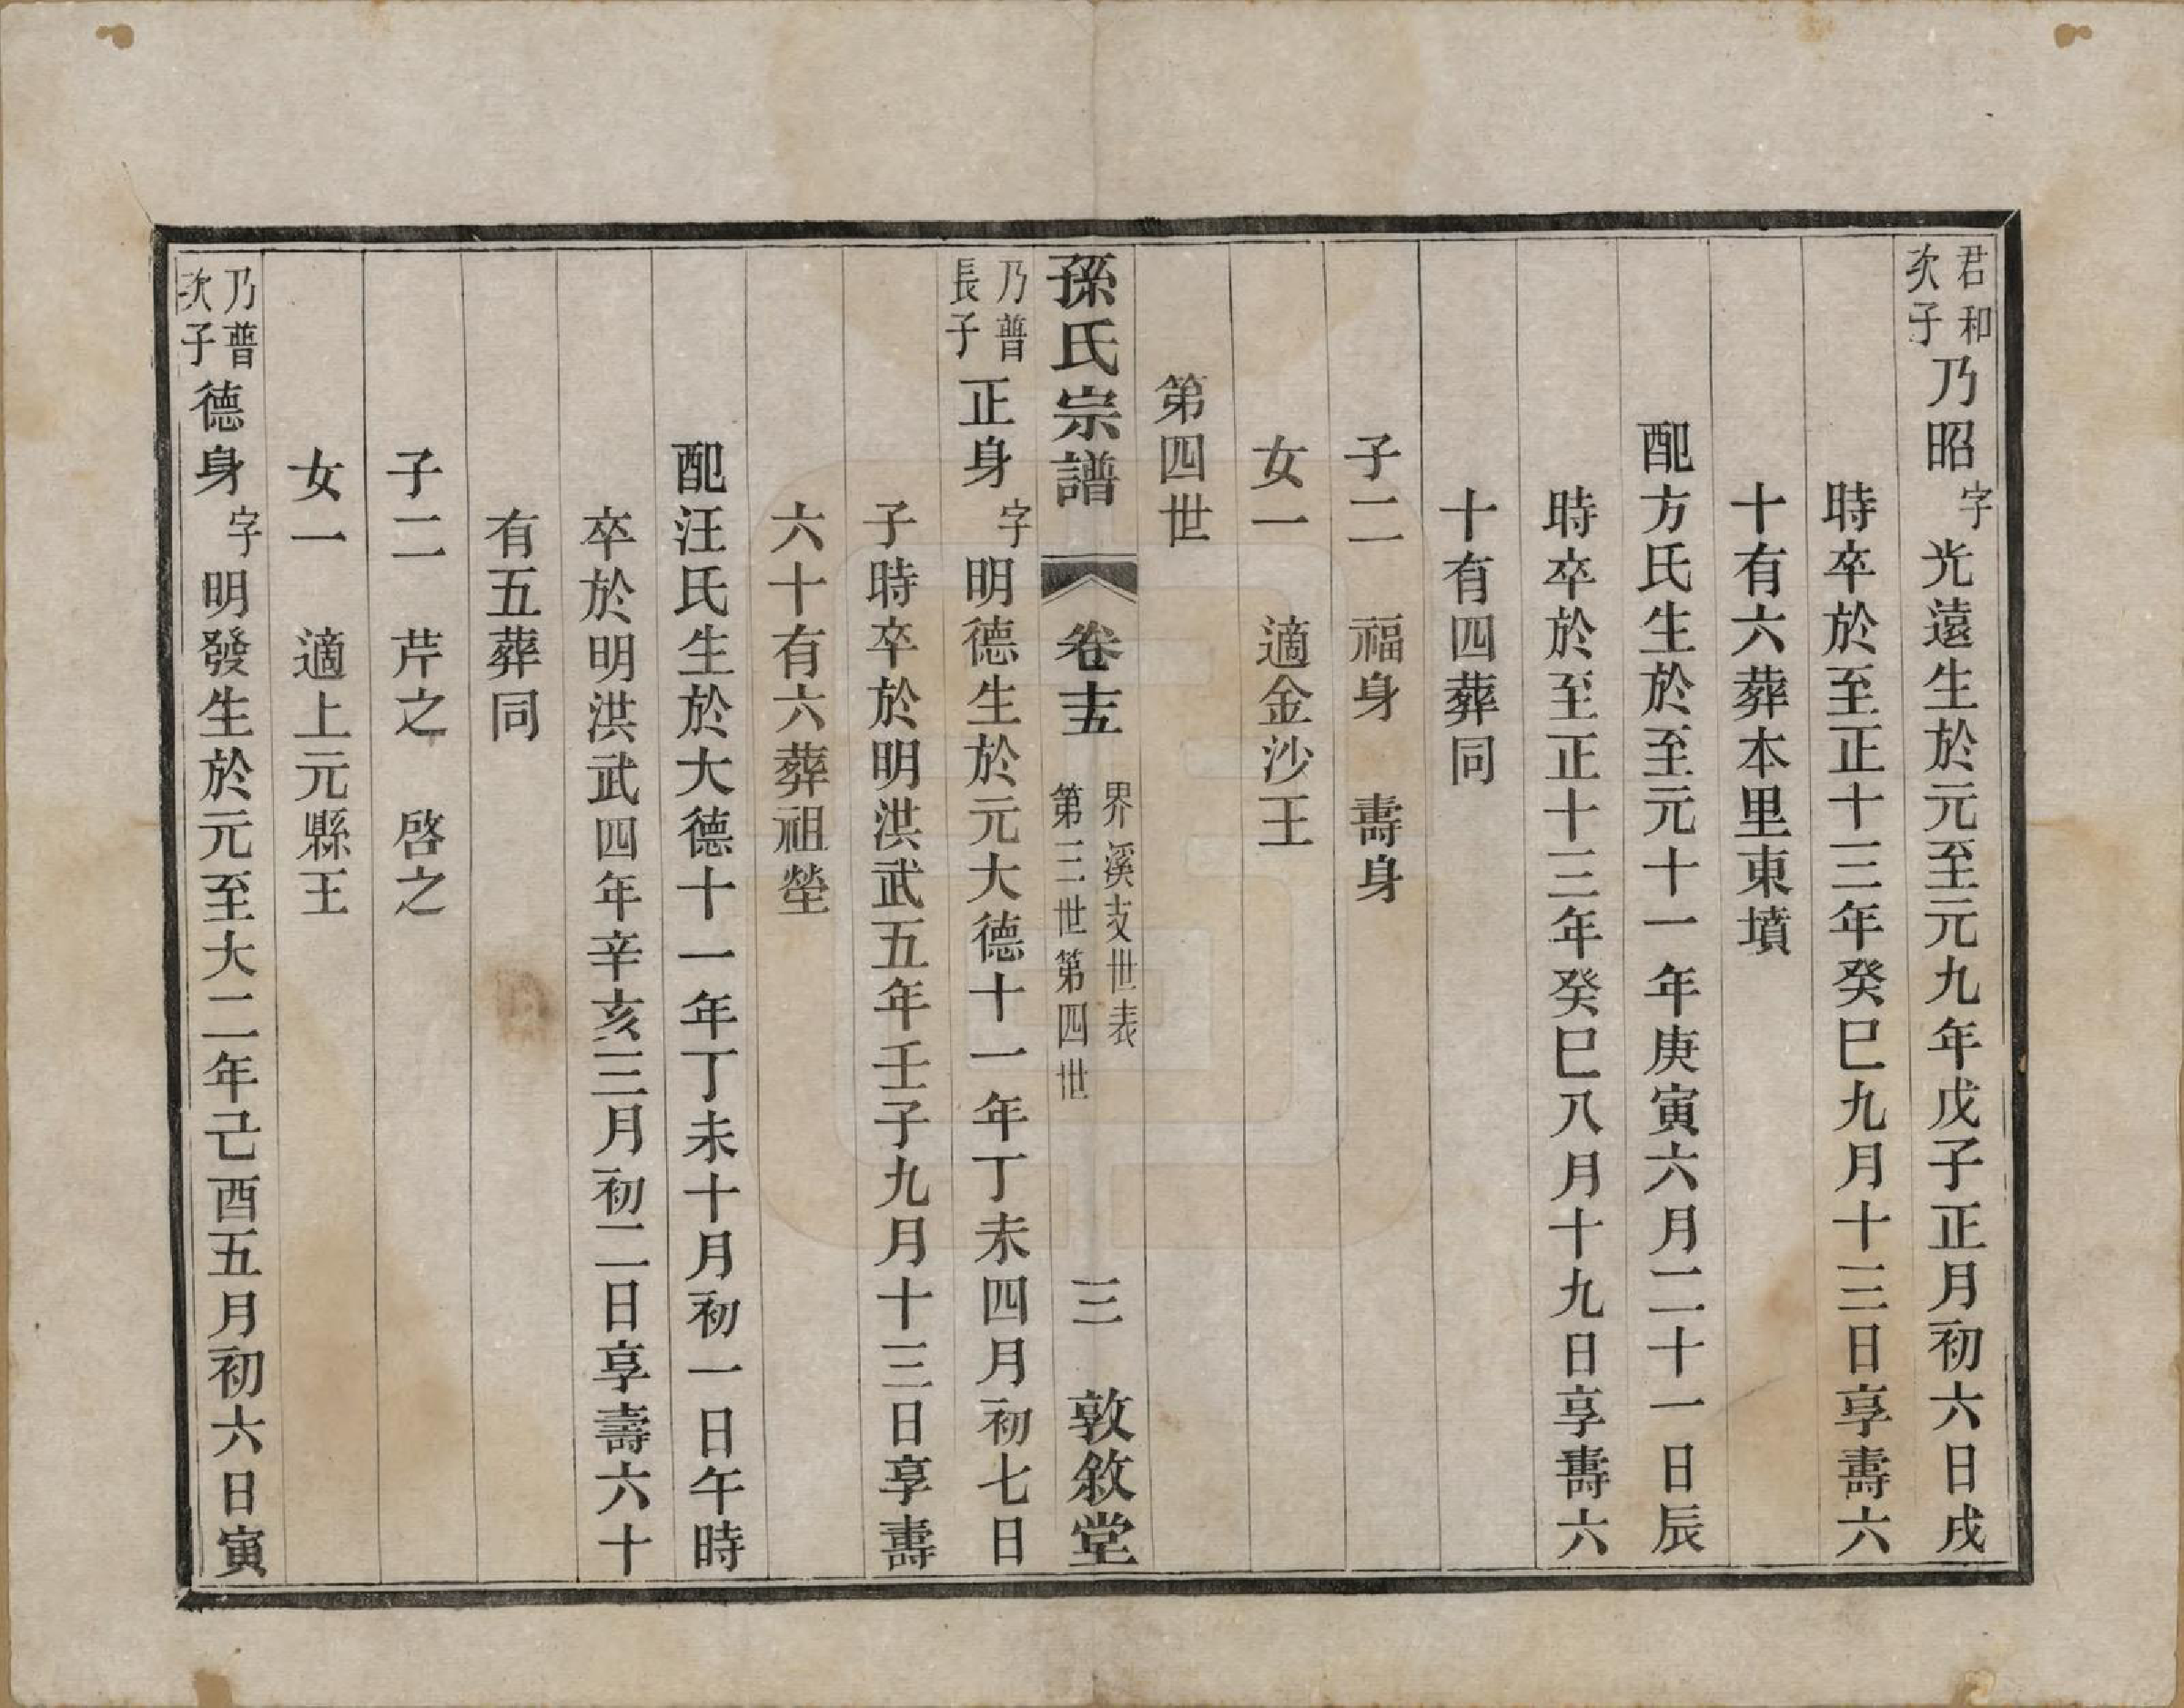 君和次子乃昭字光遠生於元至元九年戊子正月初六日戌
時卒於至正十三年癸巳九月十三日享壽六
十有六葬本里東墳
配方氏生於至元十一年庚寅六月二十一日辰
時卒於至正十三年癸巳八月十九日享壽六
十有四葬同
子二　福身　壽身
女一　適金沙王
第四世
孫氏宗譜　卷十五　界溪支世表第三世第四世　三　敦敘堂
乃普長子正身字明德生於元大德十一年丁未四月初七日
子時卒於明洪武五年壬子九月十三日享壽
六十有六葬祖塋
配汪氏生於大德十一年丁未十月初一日午時
卒於明洪武四年辛亥三月初二日享壽六十
有五葬同
子二　芹之　啓之
女一　適上元縣王
乃普次子德身字明發生於元至大二年己酉五月初六日寅